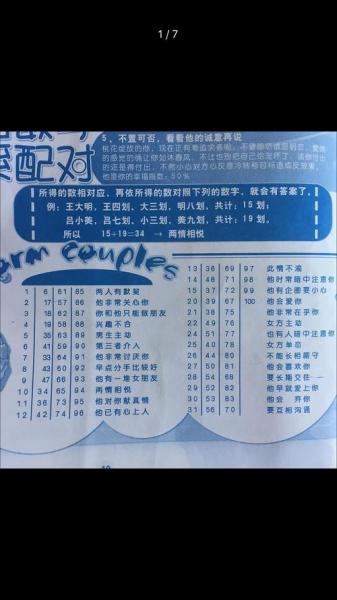 1/7
配对
5、不置可否，看看他的诚意再说
桃花绽放的你，现在正有着追求者啦，不
的感觉的确让你如沐春风，不过也别把自己给定坏了，该你付出
的还是得付出，不然小心对方心灰意冷转移目标造成反效果。
他是你的幸福指数：50%
所得的数相对应，再依所得的数对照下列的数字，就会有答案了。
例：王大明，王四划，大三划，明八划，共计：15划；
吕小美，吕七划，小三划，美九划，共计：19划。
所以 15+19=34 → 两情相悦
arm couples
1 6 61 85 两人有默契
2 17 57 86 他非常关心你
3 18 62 87 你和他只能做朋友
4 19 58 88 兴趣不合
5 35 63 89 男生主动
6 41 59 90 第三者介入
7 33 64 91 他非常讨厌你
8 43 60 92 早点分手比较好
9 47 66 93 他有一堆女朋友
10 34 65 94 两情相悦
11 36 73 95 他对你献真情
12 42 74 96 他已有心上人
13 36 69 97 此情不渝
14 48 71 98 他时常暗中注意你
15 37 72 99 他有企图要小心
20 39 67 100 他会爱你
21 38 75 他常在乎你
22 49 76 女方主动
24 51 77 也有人暗中注意你
25 40 78 女方单恋
26 44 80 不能长相厮守
27 50 81 他会喜欢你
28 54 68 要长期交往
29 52 82 他早就爱上你
30 53 83 他会 弃你
31 56 70 要互相沟通